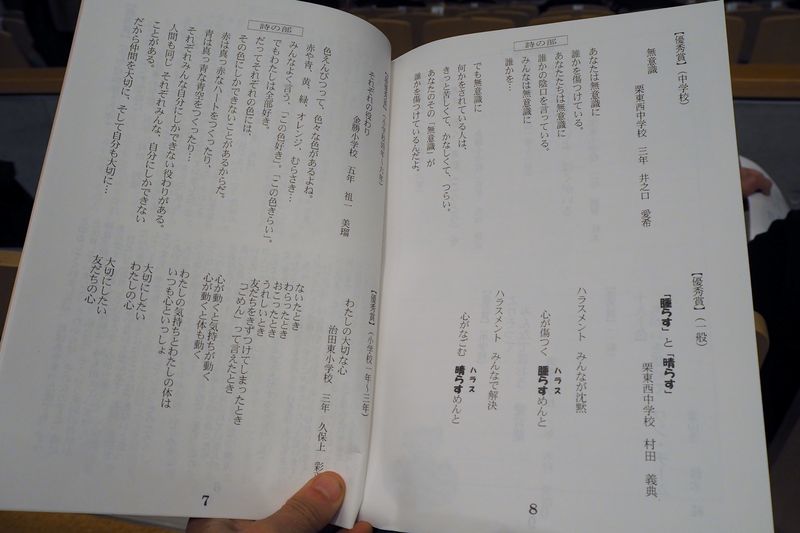 詩の部
【優秀賞】(中学校)
無意識
栗東西中学校 三年 井之口 愛希
あなたは無意識に
誰かを傷つけている。
あなたたちは無意識に
誰かの陰口を言っている。
みんなは無意識に
誰かを…
でも無意識に
何かをされている人は、
きっと苦しくて、かなしくて、つらい。
あなたのその「無意識」が
誰かを傷つけているんだよ。
【優秀賞】(一般)
「腫らす」と「晴らす」
栗東西中学校 村田 義典
ハラスメント みんなが沈黙
心が傷つく 腫らすめんと
ハラス
ハラスメント みんなで解決
心がなごむ 晴らすめんと
ハラス
8
詩の部
それぞれの役わり
金勝小学校 五年 祖一 美瑠
色えんぴつって、色々な色があるよね。
赤や青、黄、緑、オレンジ、むらさき…
みんなよく言う、「この色好き」、「この色きらい」。
でもわたしは全部好き。
だってそれぞれの色には、
その色にしかできないことがあるからだ。
赤は真っ赤なハートをつくったり、
青は真っ青な青空をつくったり…
それぞれみんな自分にしかできない役わりがある。
人間も同じ それぞれみんな、自分にしかできない
ことがある。
だから仲間を大切に、そして自分も大切に…
【優秀賞】(小学校一年～三年)
わたしの大切な心
治田東小学校 三年 久保上 彩
ないたとき
わらったとき
おこったとき
うれしいとき
友だちをきずつけてしまったとき
「ごめん」って言えたとき
心が動くと気持ちが動く
心が動くと体も動く
わたしの気持ちとわたしの体は
いつも心といっしょ
大切にしたい
わたしの心
大切にしたい
友だちの心
7